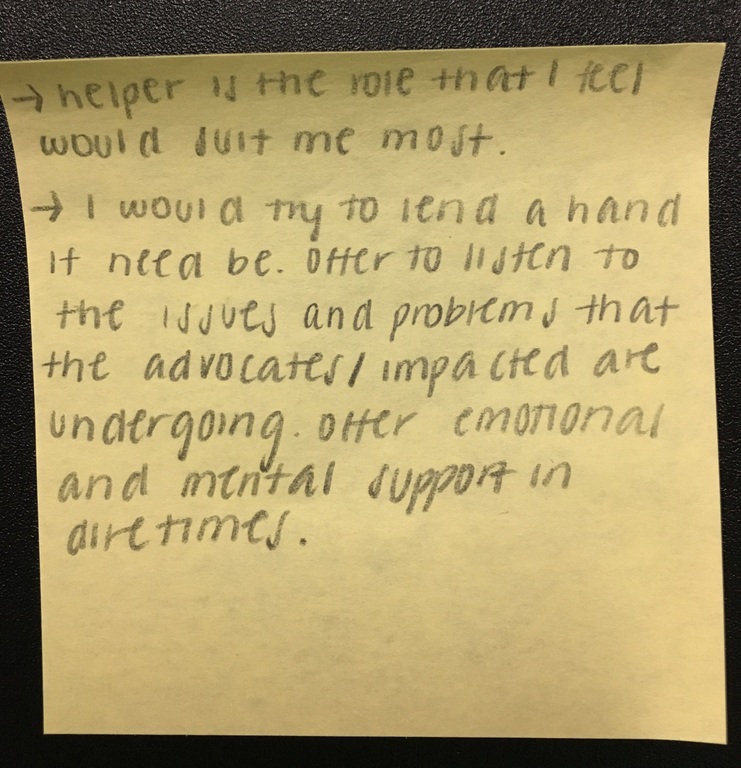 → helper is the role that I feel
would suit me most.
→ I would try to lend a hand
if need be. Offer to listen to
the issues and problems that
the advocates/impacted are
undergoing. Offer emotional
and mental support in
dire times.